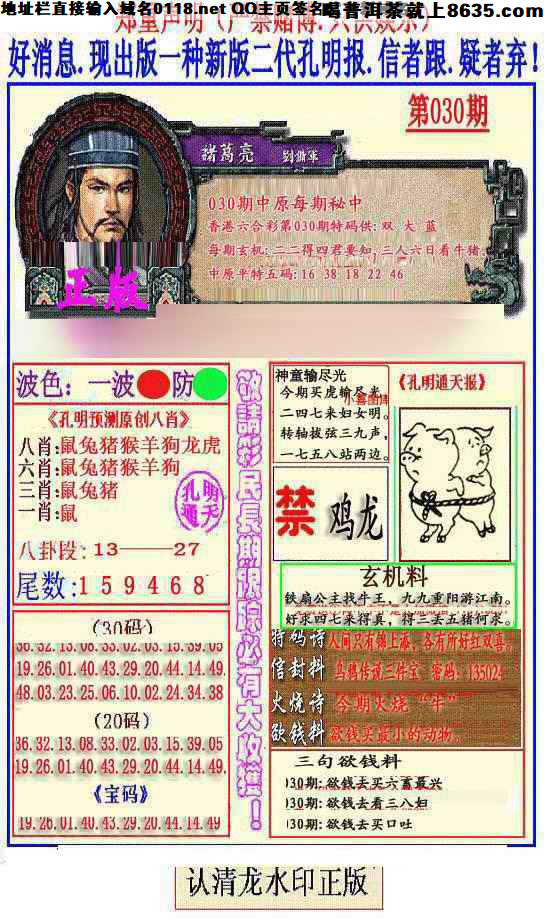 地址栏直接输入域名0118.net QQ主页签名
喝普洱茶就上8635.com
郑重声明(严禁赌博.只供娱乐)
好消息.现出版一种新版二代孔明报.信者跟.疑者弃!
第030期
諸葛亮
030期中原每期秘中
香港六合彩第030期特码供: 双 大 蓝
每期玄机: 二二得四君要知, 三人六日看牛猪
中原平特五码: 16 38 18 22 46
正版
波色: 一波 防
《孔明预测原创八肖》
八肖:鼠兔猪猴羊狗龙虎
六肖:鼠兔猪猴羊狗
三肖:鼠兔猪
一肖:鼠
孔明通天
八卦段: 13——27
尾数: 1 5 9 4 6 8
(30码)
36.32.13.08.33.02.03.15.39.05
19.26.01.40.43.29.20.44.14.49
48.03.23.25.06.10.02.24.34.38
(20码)
36.32.13.08.33.02.03.15.39.05
19.26.01.40.43.29.20.44.14.49.
《宝码》
19.26.01.40.43.29.20.44.14.49
敬請彩民長期跟踪必有大收獲!
神童输尽光
今期买虎输尽光
二四七来妇女明。
转轴拔弦三九声,
一七五八站两边。
小喜图库
《孔明通天报》
禁 鸡龙
玄机料
铁扇公主找牛王, 九九重阳游江南。
好求四七来得真, 得三去五猪何求。
特码诗 人间只有锦上添, 各有所好红双喜。
信封料 鸟类传说三件宝 密码: 135024
火烧诗 今期火烧 “牛”
欲钱料 欲钱买最小的动物。
三句欲钱料
030期: 欲钱去买六畜最兴
030期: 欲钱去看三八妇
030期: 欲钱去买口吐
认清龙水印正版